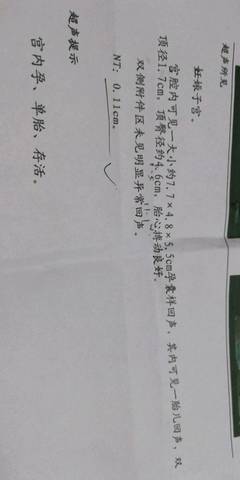 超声所见
妊娠子宫。
宫腔内可见一大小约7.7×4.8×5.5cm孕囊样回声，其内可见一胎儿回声，双
顶径1.7cm，顶臀径约4.6cm，胎心搏动良好。
双侧附件区未见明显异常回声。
NT：0.11cm。
超声提示
宫内孕、单胎、存活。